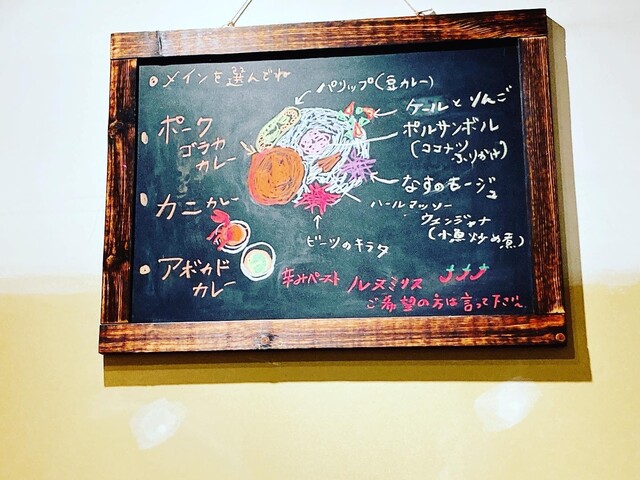 メインを選んでね
ポーク
ゴラカ
カレー
カニカレー
アボカド
カレー
パリップ(豆カレー)
ケールとりんご
ポルサンボル
(ココナツ
ふりかけ)
なすのモージュ
ハールマッソー
ウェンジャナ
(小魚炒め煮)
ビーツのキラタ
辛みペースト ルヌミリス
ご希望の方は言って下さい